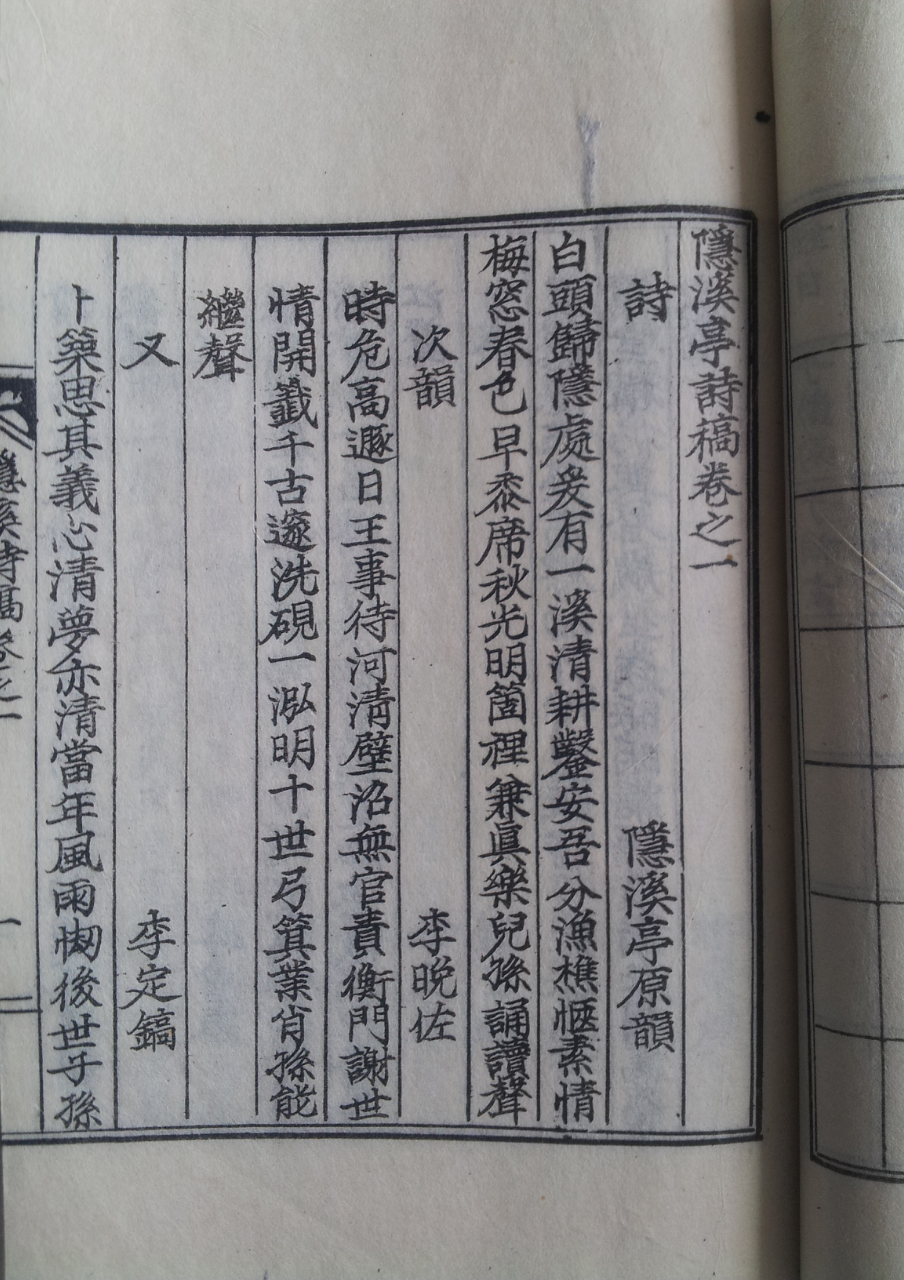 隱溪亭詩稿卷之一
詩 隱溪亭原韻
白頭歸隱處爰有一溪清耕鑿安吾分漁樵愜素情
梅窓春色早黍席秋光明箇裡兼眞樂兒孫誦讀聲
次韻 李晩佐
時危高遯日王事待河淸壁沼無官責衡門謝世
情開籤千古邃洗硯一泓明十世弓箕業肖孫能
繼聲
又 李定鎬
卜築思其義心清夢亦清當年風雨惱後世子孫
隱溪詩稿卷之一
一